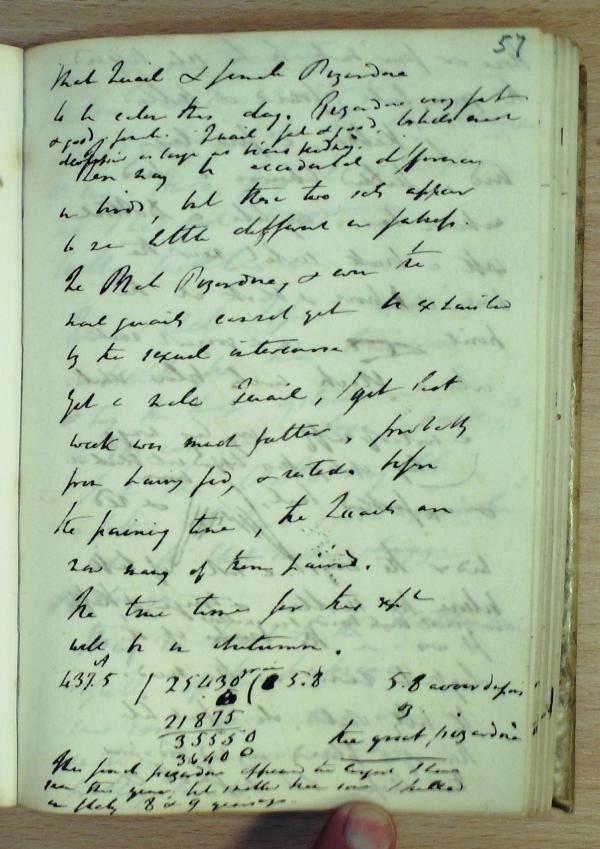 57
Male Quail & female Pizzardone
to be eaten this day. Pizzardone very fat
& good, female. Quail fat & good.
as large as
There may be accidental differences
in birds, but these two sets appear
to be little different in fatness.
The Male Pizzardone, & even the
male quails cannot yet be exhausted
by the sexual intercourse
Yet a male Quail, I got last
week was much fatter, probably
from having fed, & rested before
the pairing time, the Quails are
now many of them paired.
The true time for this expt
will be in Autumn.
437.5 / 25430 ( 5.8 5.8 avoirdupois
21875
35550 the great pizzardone
36400
This female pizzardone appeared the largest I have
seen this year, but smaller than some I killed
in Italy 8 or 9 years ago.